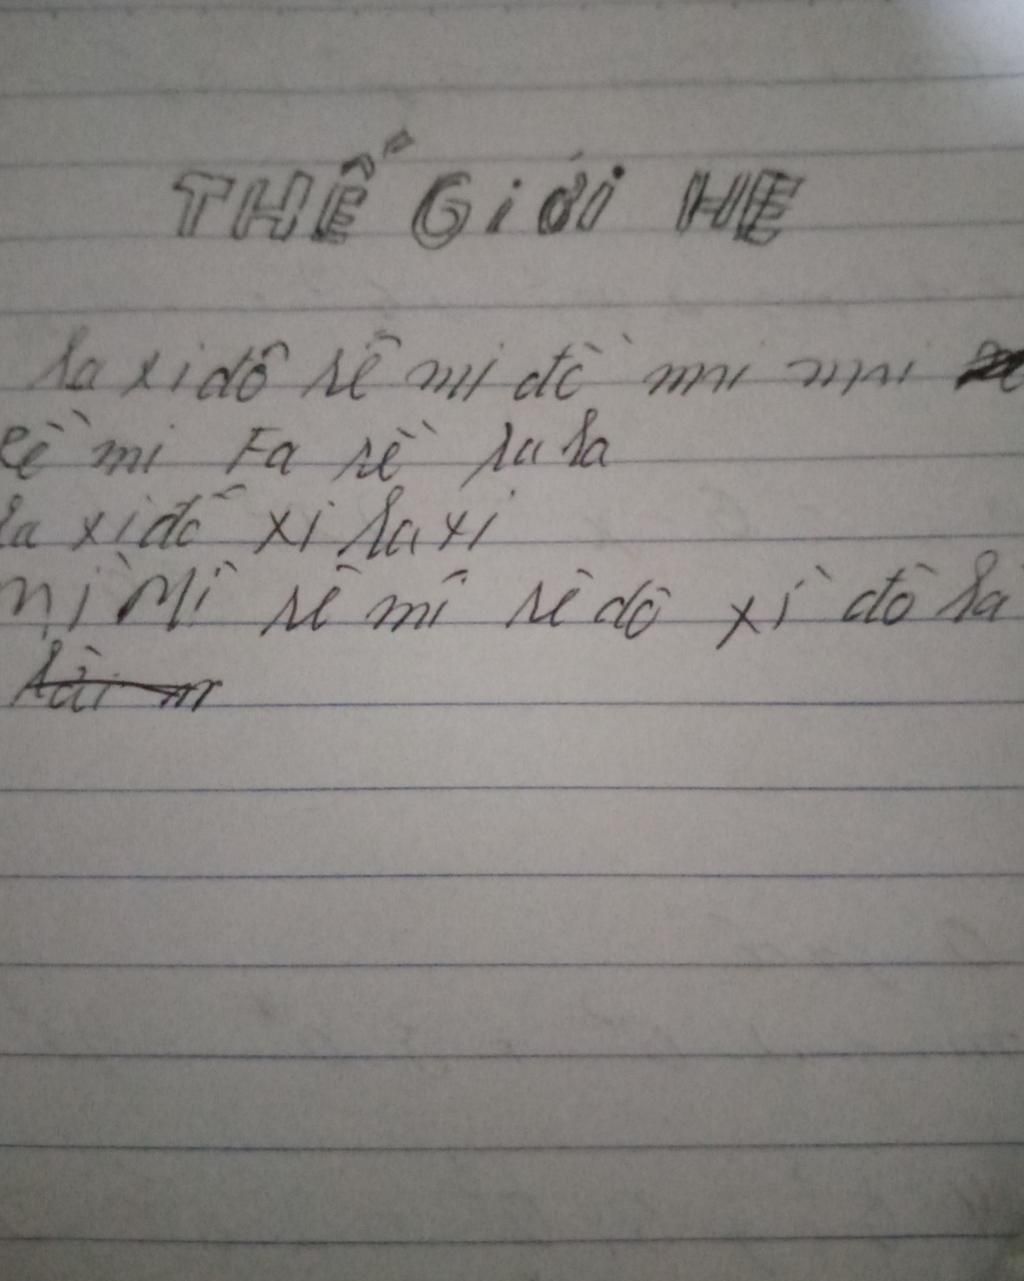 THẾ GiỚi HẸ
la xi đô rê mi đồ mi mi
Rề mi Fa rề la la
la xi đố xi la xi
mì Mì rê mi rê đô xì đồ la